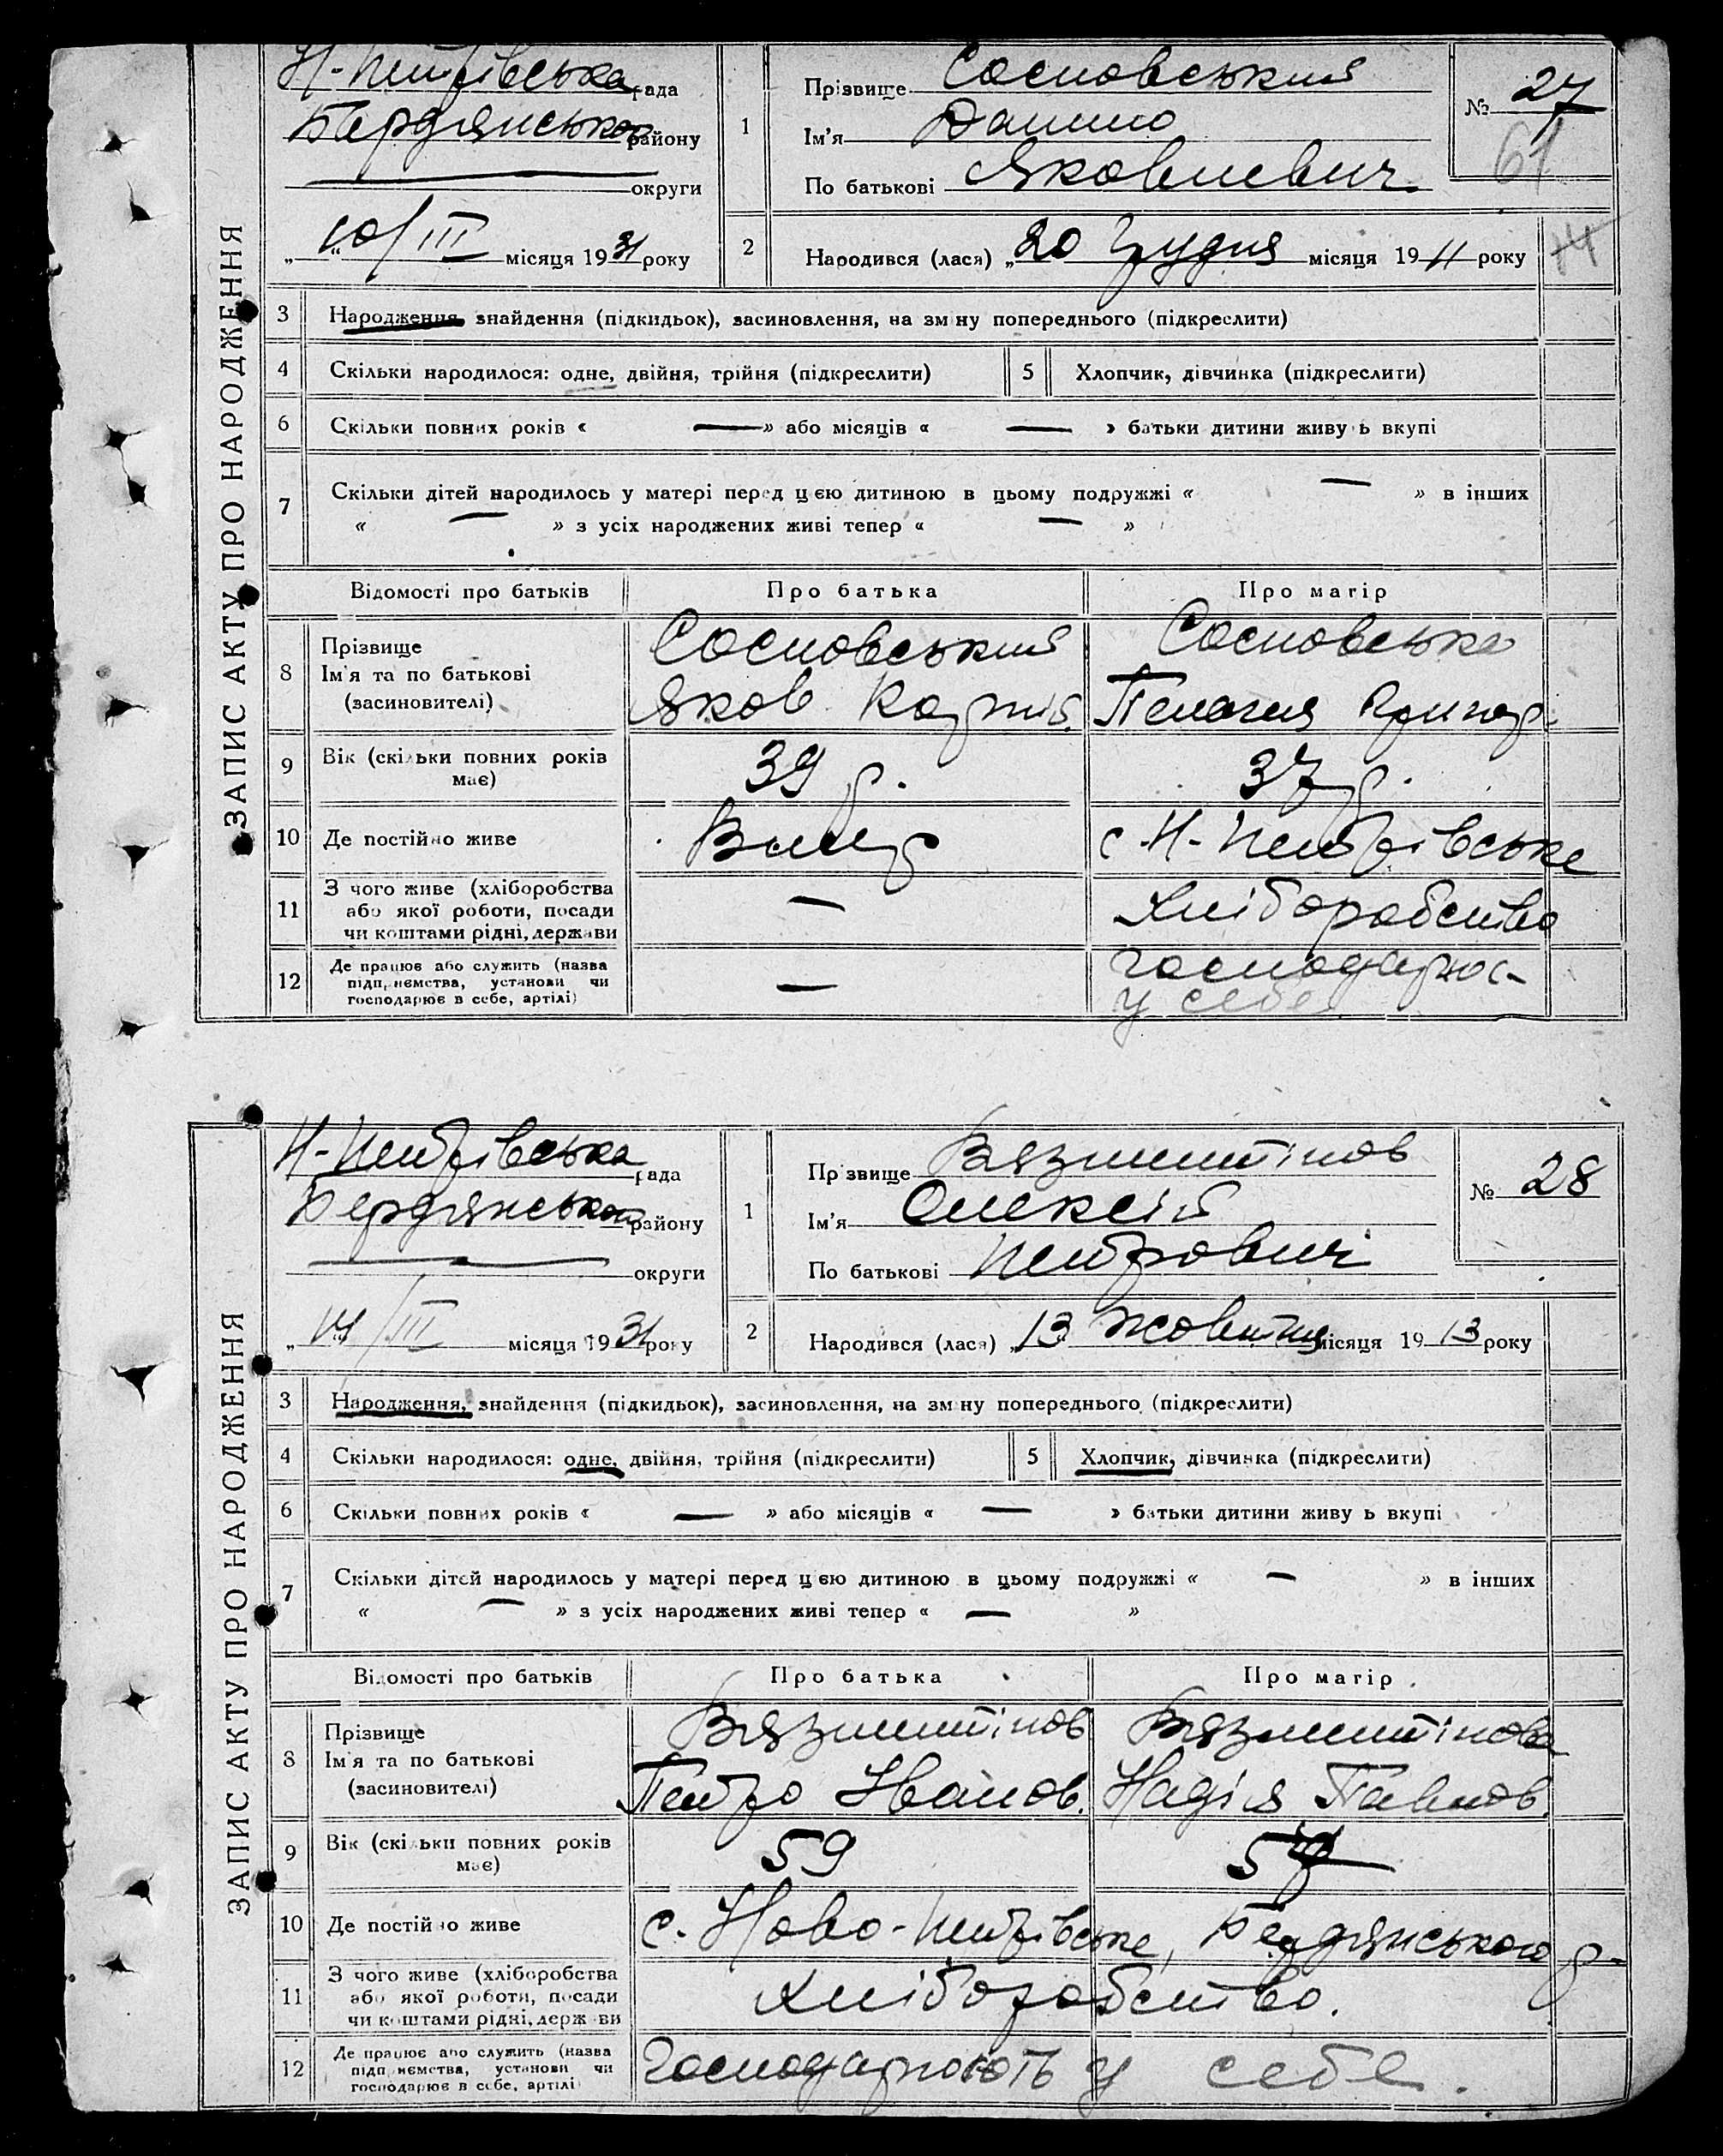 ЗАПИС АКТУ ПРО НАРОДЖЕННЯ
Н-Петрівська рада
Бердянського району
округи
„10/III місяця 1931 року
1
Прізвище Сосновський
Ім'я Данило
По батькові Яковлевич
№ 27
61
2
Народився (лася) „20 Грудня місяця 1911 року
14
3 Народження, знайдення (підкидьок), засиновлення, на зміну попереднього (підкреслити)
4 Скільки народилося: одне, двійня, трійня (підкреслити)
5 Хлопчик, дівчинка (підкреслити)
6 Скільки повних років « — » або місяців « — » батьки дитини живуть вкупі
7 Скільки дітей народилось у матері перед цією дитиною в цьому подружжі « — » в інших
« — » з усіх народжених живі тепер « — »
Відомості про батьків
Про батька
Про матір
8
Прізвище
Ім'я та по батькові
(засиновителі)
Сосновський
Яков
Сосновська
Пелагия
9
Вік (скільки повних років
має)
39 р.
37 р.
10 Де постійно живе
Вмер
с. Н-Петрівське
11
З чого живе (хліборобства
або якої роботи, посади
чи коштами рідні, держави
—
Хліборобство
12
Де працює або служить (назва
підприємства, установи чи
господарює в себе, артілі)
—
господарює
у себе
ЗАПИС АКТУ ПРО НАРОДЖЕННЯ
Н-Петрівська рада
Бердянського району
округи
„14/III місяця 1931 року
1
Прізвище Вязмитінов
Ім'я Олексій
По батькові Петрович
№ 28
2
Народився (лася) „13 жовтня місяця 1913 року
3 Народження, знайдення (підкидьок), засиновлення, на зміну попереднього (підкреслити)
4 Скільки народилося: одне, двійня, трійня (підкреслити)
5 Хлопчик, дівчинка (підкреслити)
6 Скільки повних років « — » або місяців « — » батьки дитини живуть вкупі
7 Скільки дітей народилось у матері перед цією дитиною в цьому подружжі « — » в інших
« — » з усіх народжених живі тепер « — »
Відомості про батьків
Про батька
Про матір
8
Прізвище
Ім'я та по батькові
(засиновителі)
Вязмитінов
Петро Іванов.
Вязмитінова
Надія Павлов.
9
Вік (скільки повних років
має)
59
10 Де постійно живе
с. Ново-Петрівське, Бердянського р-
11
З чого живе (хліборобства
або якої роботи, посади
чи коштами рідні, держави
Хліборобство.
12
Де працює або служить (назва
підприємства, установи чи
господарює в себе, артілі
Господарюють у себе.